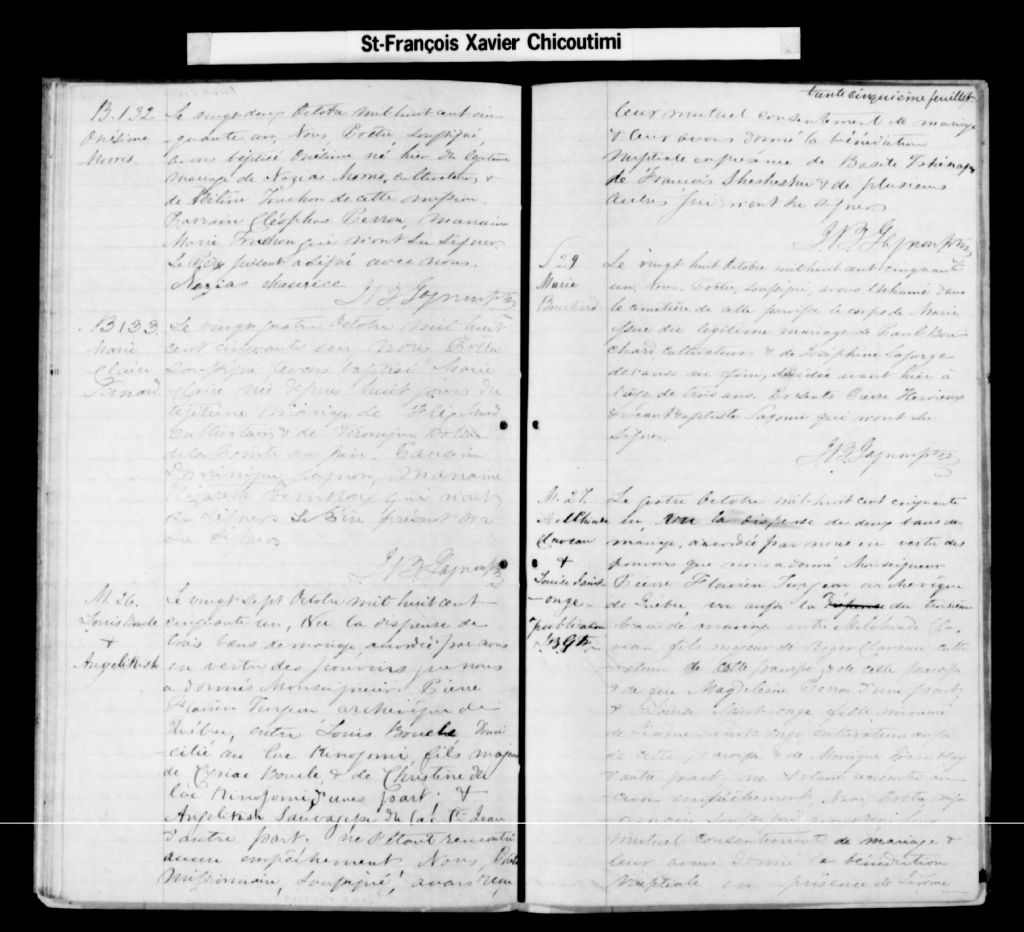 St-François Xavier Chicoutimi
B.132.
Onésime
Morris.
Le vingt deux Octobre mil huit cent cin
quante un, Nous Prêtre, soussigné,
avons baptisé Onésime né hier du légitime
mariage de Nazias Morris, cultivateur, &
de Truchon de cette mission.
Parrain Cléophas Perron, Marraine
Marie Truchon qui n'ont su signer.
Le Père présent a signé avec nous.
Nazias Maurice
J N B Gagnon Ptre
B 133
Marie
Claire
Le vingt quatre Octobre mil huit
cent cinquante un, nous Prêtre
soussigné avons baptisé Marie
Claire née depuis huit jours du
légitime mariage de
cultivateur & de Véronique
Parrain
Dominique Gagnon, Marraine
Elizabeth Tremblay qui n'ont
su signer. Le Père présent n'a
su signer.
J N B Gagnon ptre
M. 26.
Louis Boucle
&
Angelikish
Le vingt sept Octobre mil huit cent
cinquante un, Vu la dispense de
trois bans de mariage accordée par nous
en vertu des pouvoirs que nous
a donnés Monseigneur Pierre
Flavien Turgeon archevêque de
Québec, entre Louis Boucle Domi
cilié au lac Kinogomi, fils majeur
de Cyriac Boucle & de Christine du
lac Kinogomi d'une part; &
Angelikish Sauvagesse du lac St. Jean
d'autre part. ne s'étant rencontré
aucun empêchement Nous, Prêtre
Missionnaire, soussigné, avons reçu
trente cinquième feuillet
leur mutuel consentement de mariage
& leur avons donné la bénédiction
nuptiale en présence de Basile
de François & de plusieurs
autres qui n'ont su signer
J N B Gagnon Ptre
S 29.
Marie
Bouchard
Le vingt huit Octobre mil huit cent cinquante
un, Nous, Prêtre, soussigné, avons inhumé dans
le cimetière de cette paroisse le corps de Marie,
issue du légitime mariage de Paul Bou
chard cultivateur & de Joséphine Laforge
décédée avant hier à
l'âge de trois ans. Présents Pierre
& Jean Baptiste qui n'ont su
signer.
J N B Gagnon ptre
M. 27.
Melchiade
Claveau
&
Louise Saint
-onge
publication
Le Octobre mil huit cent cinquante
un, Vu la dispense de deux bans de
mariage, accordée par nous en vertu des
pouvoirs que nous a donné Monseigneur
Pierre Flavien Turgeon archevêque
de Québec, vu aussi la du troisième
ban de mariage entre Melchiade Cla
veau, fils majeur de Roger Claveau culti
vateur de cette paroisse & de cette paroisse
& de feu Magdeleine d'une part,
& Louise Saint-onge fille mineure
de Saint onge cultivateur aussi
de cette paroisse & de Monique Tremblay
d'autre part. ne s'étant rencontré au
cun empêchement, Nous, Prêtre, mis
sionnaire soussigné avons reçu leur
mutuel consentement de mariage &
leur avons donné la bénédiction
nuptiale en présence de Jérôme